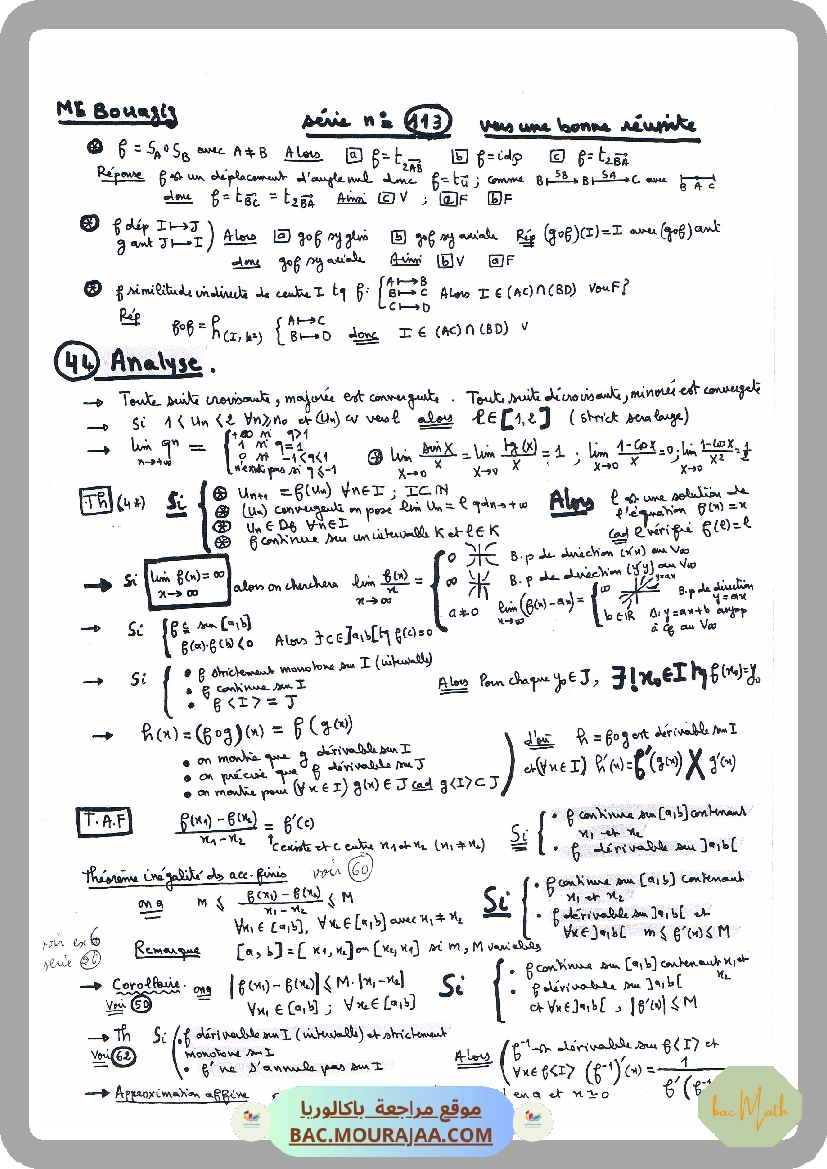 Mr Bouaziz série n° 113 vers une bonne réussite
⊛ f = S_A o S_B avec A ≠ B Alors [a] f = t_{2AB} [b] f = idp [c] f = t_{2BA}
Réponse f est un déplacement d'angle nul donc f = t_u ; comme B ↦ B ↦ C avec B A C
donc f = t_{BC} = t_{2BA} Ainsi [c] V ; [a] F [b] F
⊛ f dép I ↦ J
g ant J ↦ I
Alors [a] gof sy gliss [b] gof sy axiale Rép (gof)(I) = I avec (gof) ant
donc gof sy axiale Ainsi [b] V [a] F
⊛ f similitude indirecte de centre I tq f : { A ↦ B
B ↦ C
C ↦ D
Alors I ∈ (AC) ∩ (BD) V ou F ?
Rép
fof = h(I, k²) { A ↦ C
B ↦ D
donc I ∈ (AC) ∩ (BD) V
44 Analyse.
→ Toute suite croissante, majorée est convergente. Toute suite décroissante, minorée est convergete
→ Si 1 < Un < 2 ∀n ≥ n₀ et (Un) cv vers l alors l ∈ [1,2] (strict sera large)
→ lim qⁿ =
n→+∞
{ +∞ si q>1
1 si q=1
0 si -1<q<1
n'existe pas si q ≤ -1
⊛ lim sin X / X = lim tg(X) / X = 1 ; lim 1-cos X / X = 0 ; lim 1-cos X / X² = 1/2
X→0 X→0 X→0 X→0
Th (4*) Si
⊛ Un+1 = f(Un) ∀n ∈ I ; I ⊂ ℕ
⊛ (Un) convergente on pose lim Un = l qd n→+∞
⊛ Un ∈ Df ∀n ∈ I
⊛ f continue sur un intervalle K et l ∈ K
Alors l est une solution de
l'équation f(x) = x
cad l vérifie f(l) = l
→ Si lim f(x) = ∞
x→∞
alors on cherchera lim f(x)/x =
x→∞
{ 0 B.p de direction (x'x) au V∞
∞ B.p de direction (y'y) au V∞
a ≠ 0 lim (f(x) - ax) =
x→∞
{ ∞ y=ax B.p de direction y = ax
b ∈ ℝ Δ: y = ax+b asymp
à Cf au V∞
→ Si { f c sur [a,b]
f(a).f(b) < 0
Alors ∃ c ∈ ]a,b[ tq f(c) = 0
→ Si
• f strictement monotone sur I (intervalle)
• f continue sur I
• f<I> = J
Alors Pour chaque y₀ ∈ J, ∃! x₀ ∈ I tq f(x₀) = y₀
→ h(x) = (fog)(x) = f(g(x))
• on montre que g dérivable sur I
• on précise que f dérivable sur J
• on montre pour (∀x ∈ I) g(x) ∈ J cad g<I> ⊂ J
d'où h = fog est dérivable sur I
et (∀x ∈ I) h'(x) = f'(g(x)) X g'(x)
T.A.F f(x₁) - f(x₂) / x₁ - x₂ = f'(c)
c existe et c entre x₁ et x₂ (x₁ ≠ x₂)
Si
• f continue sur [a,b] contenant
x₁ et x₂
• f dérivable sur ]a,b[
Théorème inégalité ds acc. finis voir 60
on a m ≤ f(x₁) - f(x₂) / x₁ - x₂ ≤ M
∀x₁ ∈ [a,b], ∀x₂ ∈ [a,b] avec x₁ ≠ x₂
Si
• f continue sur [a,b] contenant
x₁ et x₂
• f dérivable sur ]a,b[ et
∀x ∈ ]a,b[ m ≤ f'(x) ≤ M
voir ex 6
série 26
Remarque [a,b] = [x₁,x₂] ou [x₂,x₁] si m, M variables
→ Corollaire. on a |f(x₁) - f(x₂)| ≤ M.|x₁-x₂|
Voir 50
∀x₁ ∈ [a,b] ; ∀x₂ ∈ [a,b]
Si
• f continue sur [a,b] contenant x₁ et x₂
• f dérivable sur ]a,b[
et ∀x ∈ ]a,b[, |f'(x)| ≤ M
→ Th Si
Voir 62
• f dérivable sur I (intervalle) et strictement
monotone sur I
• f' ne s'annule pas sur I
Alors
f⁻¹ est dérivable sur f<I> et
∀x ∈ f<I> (f⁻¹)'(x) = 1 / f'(f⁻¹
→ Approximation affine
en a et x ≥ 0
موقع مراجعة باكالوريا
BAC.MOURAJAA.COM
bac Math